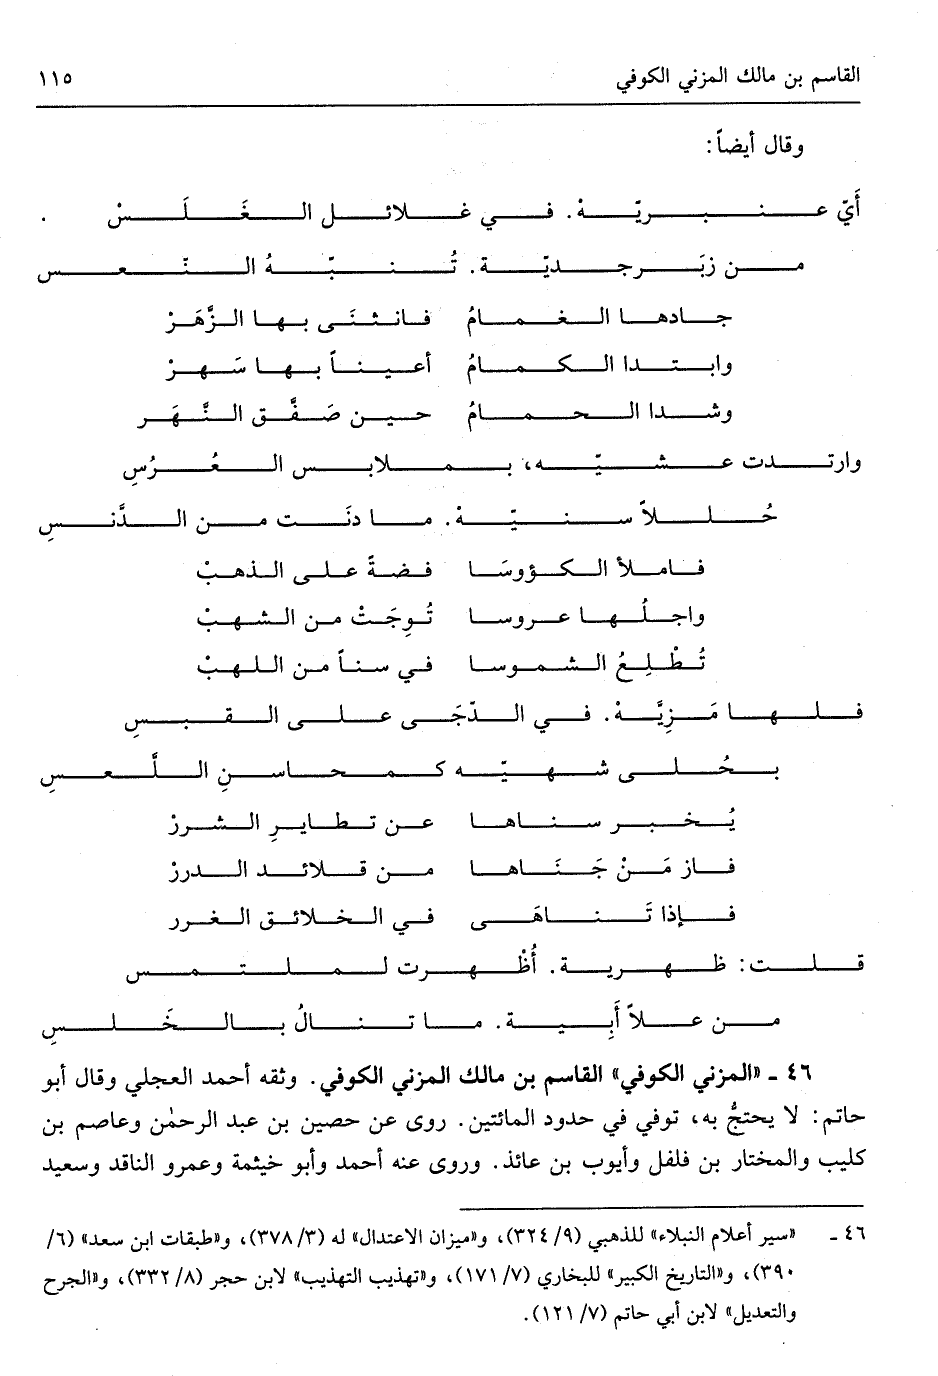 القاسم بن مالك المزني الكوفي ١١٥
وقال أيضاً:
أَيّ عنبريّهْ. في غلائل الغَلَسْ
من زبَرجديّة. تُنبّهُ النّعس
جادها الغمامُ فانثنَى بها الزَّهَرْ
وابتدا الكمامُ أعيناً بها سَهرْ
وشدا الحمامُ حين صَفَّق النَّهَر
وارتدت عشيّه، بملابس العُرُسِ
حُللاً سنيّهْ. ما دنَت من الدَّنسِ
فاملأ الكؤوسَا فضةً على الذهبْ
واجلُها عروسا تُوِجَتْ من الشهبْ
تُطْلِعُ الشموسا في سناً من اللهبْ
فلها مَزِيَّهْ. في الدّجَى على القبسِ
بحُلى شهيّه كمحاسنِ اللَّعسِ
يُخبر سناها عن تطايرِ الشررْ
فاز مَنْ جَنَاها من قلائد الدررْ
فإذا تَناهَى في الخلائق الغرر
قلت: ظهرية. أُظْهرت لملتمس
من علاً أَبِية. ما تنالُ بالخَلسِ
٤٦ ـ «المزني الكوفي» القاسم بن مالك المزني الكوفي. وثقه أحمد العجلي وقال أبو
حاتم: لا يحتجُّ به، توفي في حدود المائتين. روى عن حصين بن عبد الرحمٰن وعاصم بن
كليب والمختار بن فلفل وأيوب بن عائذ. وروى عنه أحمد وأبو خيثمة وعمرو الناقد وسعيد
٤٦ ـ «سير أعلام النبلاء» للذهبي (٩/ ٣٢٤)، و«ميزان الاعتدال» له (٣/ ٣٧٨)، و«طبقات ابن سعد» (٦/
٣٩٠)، و«التاريخ الكبير» للبخاري (٧/ ١٧١)، و«تهذيب التهذيب» لابن حجر (٨/ ٣٣٢)، و«الجرح
والتعديل» لابن أبي حاتم (٧/ ١٢١).